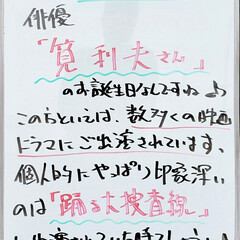 俳優
「筧 利夫さん」
のお誕生日なんですね♪
この方といえば、数多くの映画
ドラマにご出演されています、
個人的にやっぱり印象深い
のは「踊る大捜査線」